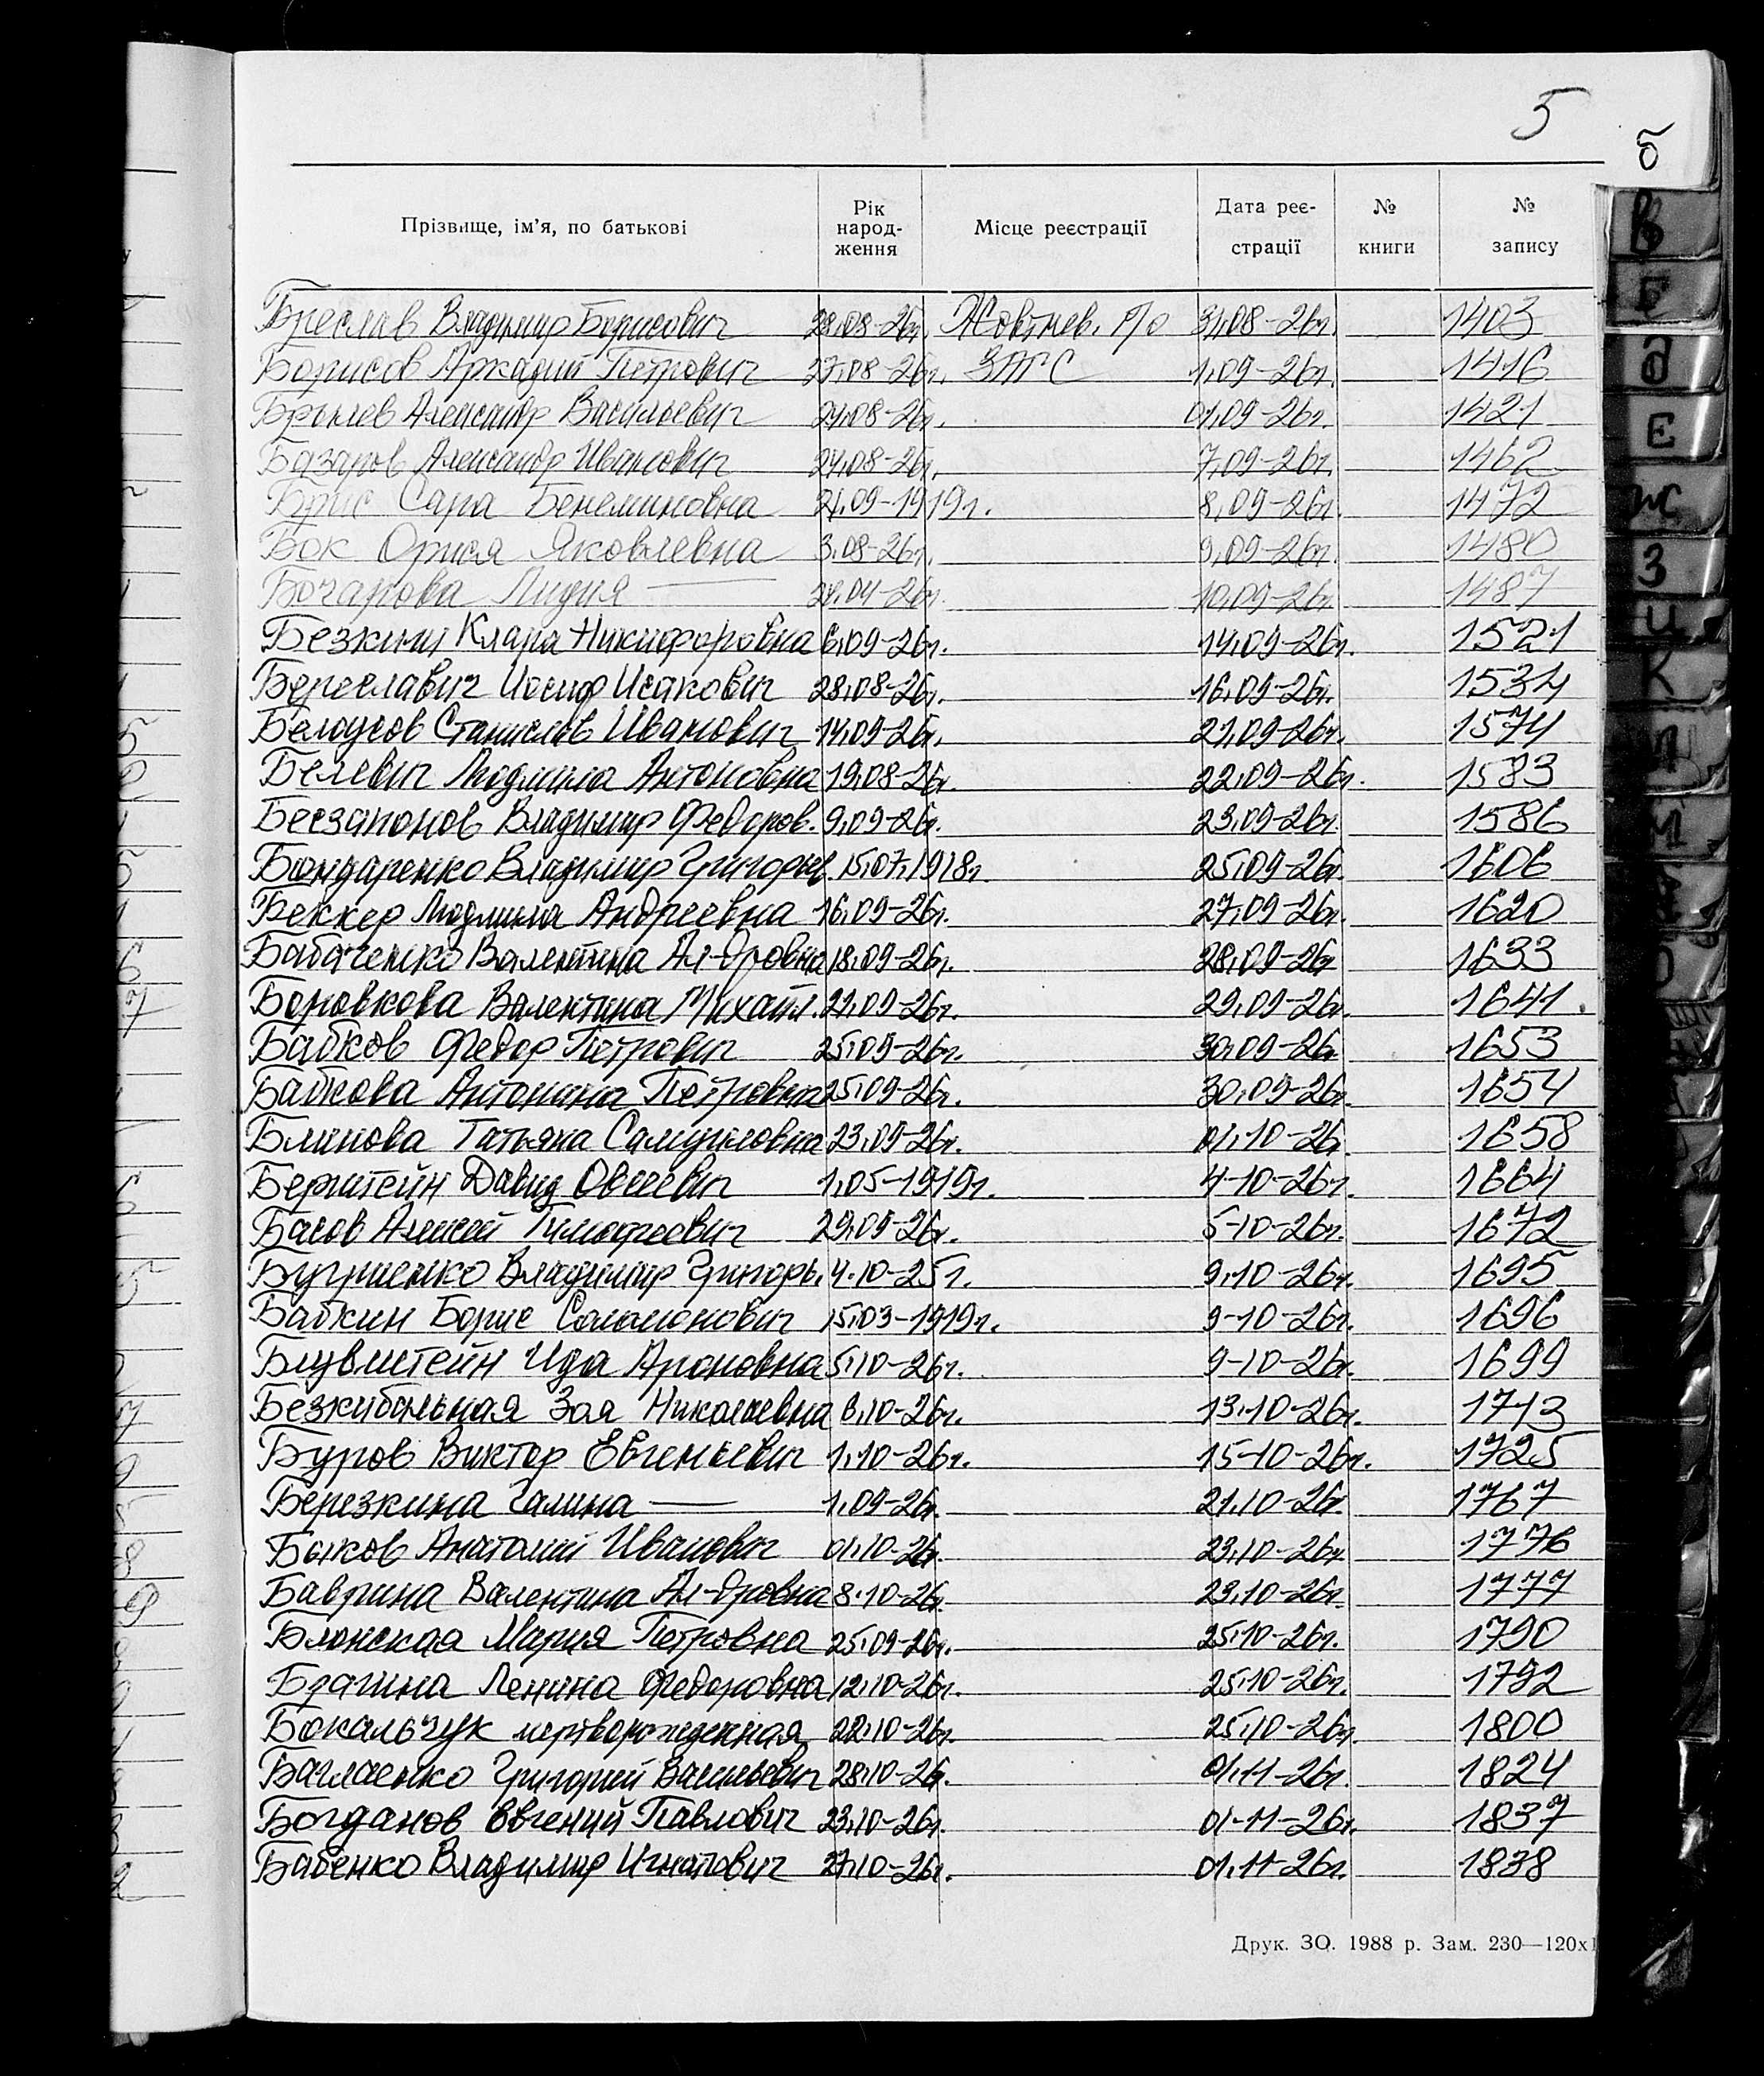 5
б
Прізвище, ім'я, по батькові Рік народ-ження Місце реєстрації Дата реє-страції № книги № запису
Бреслав Владимир Борисович 28.08-26г. Жовтнев. р/о 31.08-26г. 1403
Борисов Аркадий Петрович 27.08-26г. ЗАГС 1.09-26г. 1416
Александр Васильевич 24.08-26г. 01.09-26г. 1421
Базаров Александр Иванович 24.08-26г. 7.09-26г. 1462
Брис Сара Бенеминовна 21.09-1919г. 8.09-26г. 1472
Бок Яковлевна 3.08-26г. 9.09-26г. 1480
Бочарова Лидия — 28.04-26г. 10.09-26г. 1487
Клара Никифоровна 6.09-26г. 14.09-26г. 1521
Береславич Иосиф Исакович 28.08-26г. 16.09-26г. 1534
Белоусов Станислав Иванович 14.09-26г. 21.09-26г. 1574
Белевич Людмила Антоновна 19.08-26г. 22.09-26г. 1583
Бесзапонов Владимир Федоров. 9.09-26г. 23.09-26г. 1586
Бондаренко Владимир Григорьев. 15.07.1918г. 25.09-26г. 1606
Беккер Людмила Андреевна 16.09-26г. 27.09-26г. 1620
Бабаченко Валентина Ал-дровна 18.09-26г. 28.09-26г 1633
Боровкова Валентина Михайл. 21.09-26г. 29.09-26г. 1641.
Бабков Федор Петрович 25.09-26г. 30.09-26г 1653
Бабкова Антонина Петровна 25.09-26г. 30.09-26г. 1654
Блинова Татьяна Самуиловна 23.09-26г. 01.10-26г. 1658
Бернштейн Давид Овсеевич 1.05-1919г. 4-10-26г. 1664
Басов Алексей Тимофеевич 29.09-26г. 5-10-26г. 1672
Владимир Григорь. 4.10-25г. 9.10-26г. 1695
Бабкин Борис Соломонович 15.03-1919г. 9-10-26г. 1696
Блувштейн Ида Ароновна 5.10-26г. 9-10-26г. 1699
Безкибальная Зоя Николаевна 6.10-26г. 13.10-26г. 1713
Буров Виктор Евгеньевич 1.10-26г. 15-10-26г. 1725
Березкина Галина — 1.09-26г. 21.10-26г. 1767
Быков Анатолий Иванович 01.10-26г. 23.10-26г. 1776
Баврина Валентина Ал-дровна 8.10-26г. 23.10-26г. 1777
Блонская Мария Петровна 25.09-26г. 25.10-26г. 1790
Ленина Федоровна 12.10-26г. 25.10-26г. 1792
Бокальчук мертворожденная 22.10-26г. 25.10-26г. 1800
Баглаенко Григорий Васильевич 28.10-26г. 01.11-26г. 1824
Богданов Евгений Павлович 23.10-26г. 01-11-26г. 1837
Бабенко Владимир Игнатович 27.10-26г. 01.11-26г. 1838
Друк. ЗО. 1988 р. Зам. 230—120х1